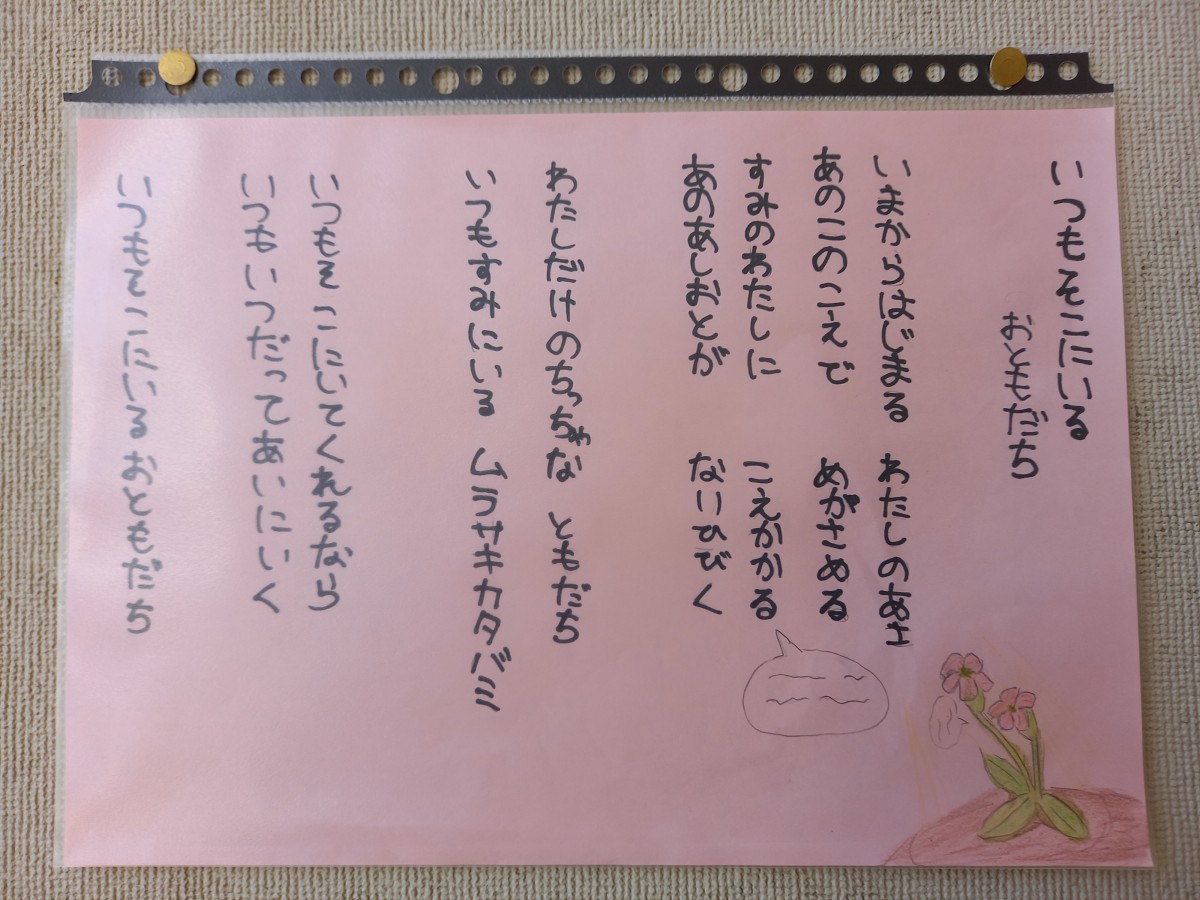 いつもそこにいる
おともだち
いまからはじまる　わたしのあさ
あのこのこえで　めがさめる
すみのわたしに　こえかかる
あのあしおとが　なりひびく
わたしだけのちっちゃな　ともだち
いつもすみにいる　ムラサキカタバミ
いつもそこにいてくれるなら
いつもいつだってあいにいく
いつもそこにいるおともだち